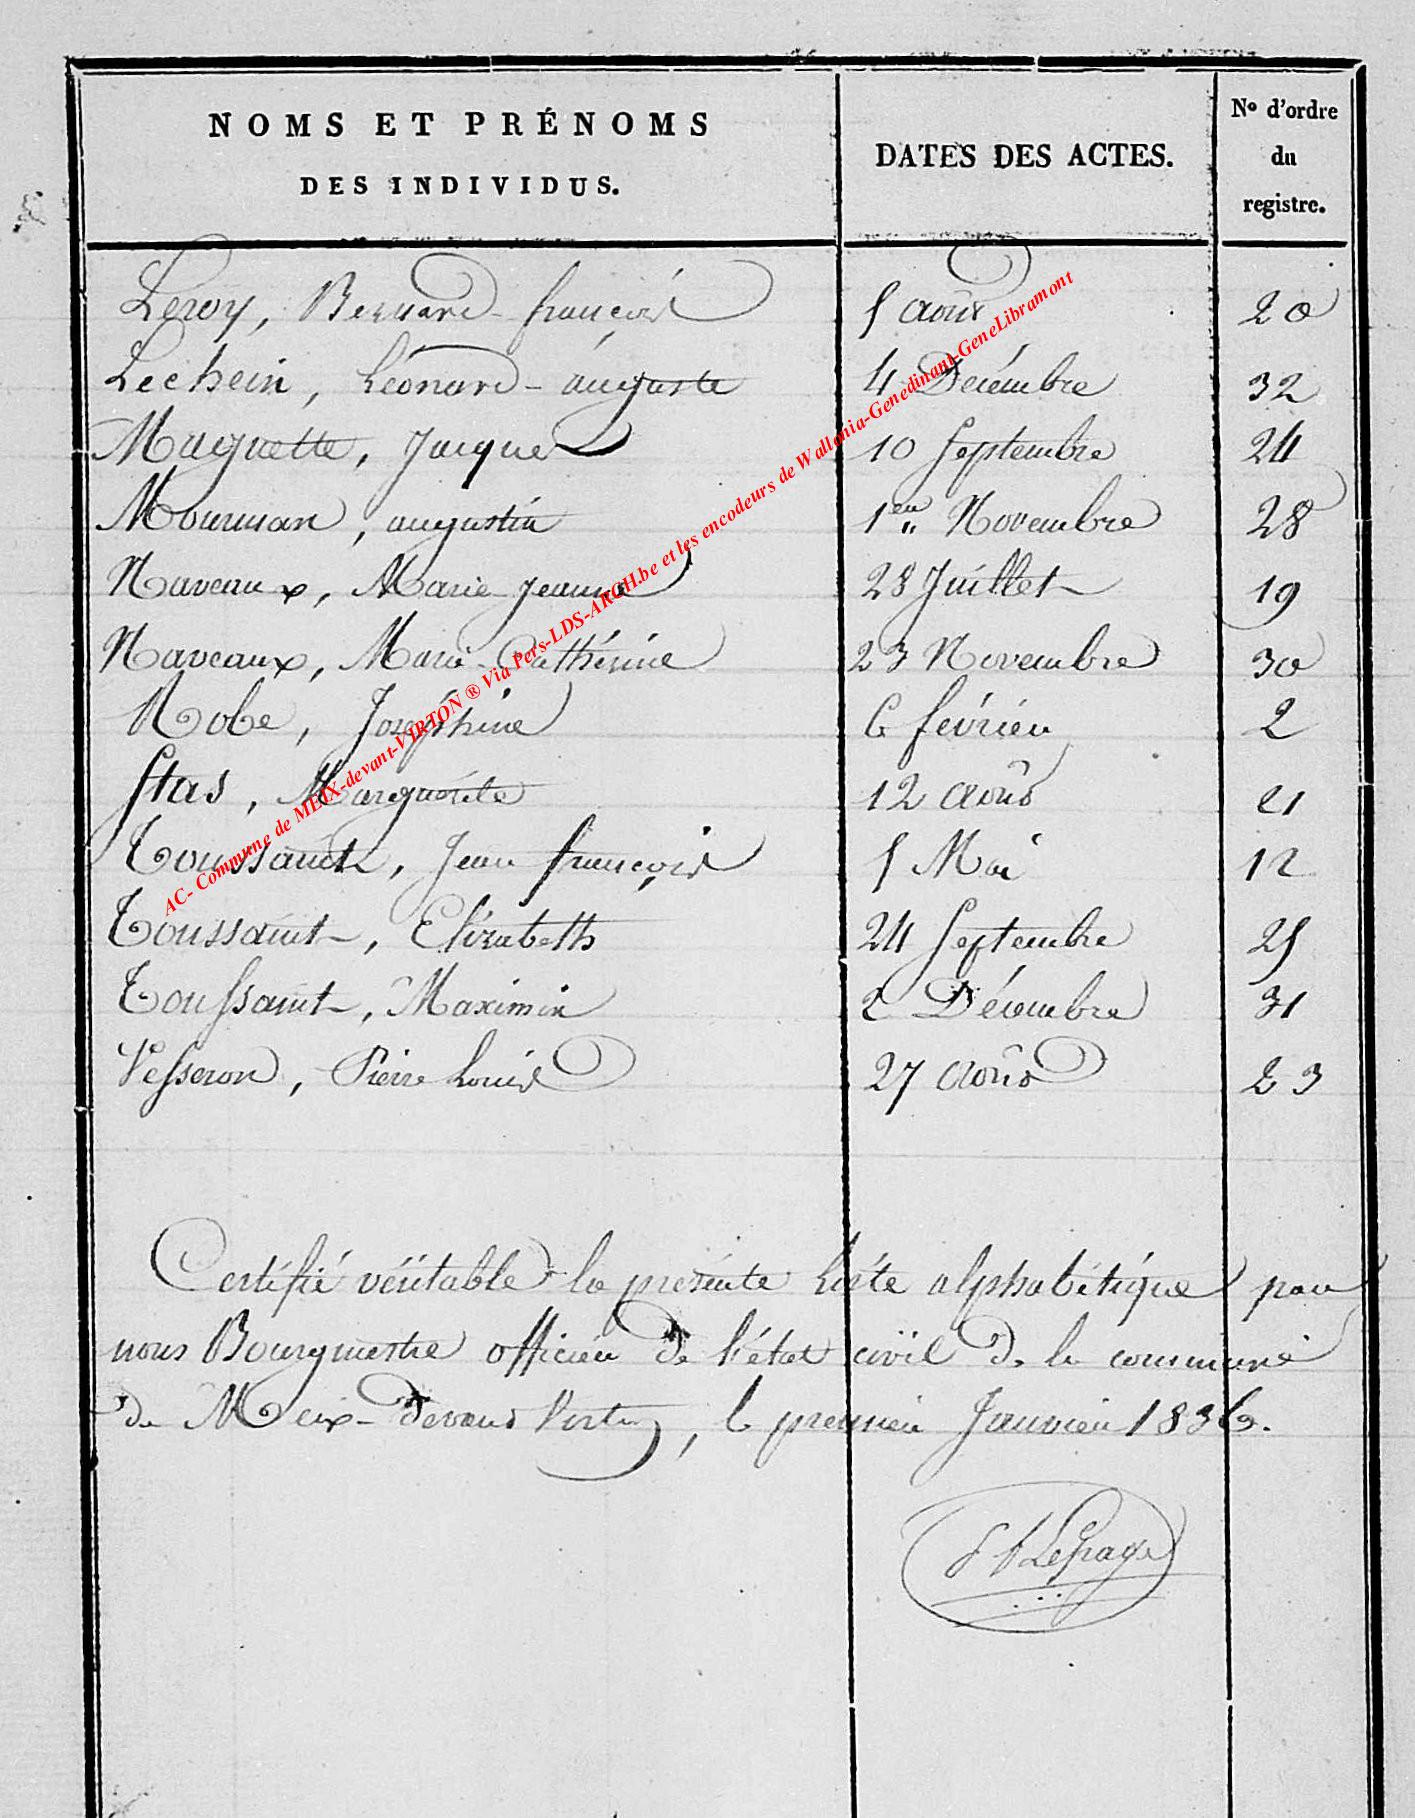 NOMS ET PRÉNOMS
DES INDIVIDUS.
DATES DES ACTES.
Nº d'ordre
du
registre.
Leroy, Bernard-françois 5 Août 20
Lechein, Léonard-auguste 4 Décembre 32
Maguette, Jacques 10 Septembre 24
Mourman, augustin 1er Novembre 28
Naveaux, Marie-Jeanne 28 Juillet 19
Naveaux, Marie-Cathérine 23 Novembre 30
Robe, Joséphine 6 février 2
Stas, Marguérite 12 Août 21
Toussaint, Jean françois 5 Mai 12
Toussaint, Elizabeth 24 Septembre 25
Toussaint, Maximin 2 Décembre 31
Vesseron, Pierre Louis 27 Août 23
Certifié véritable la présente liste alphabétique par
nous Bourgmestre officier de l'état civil de la commune
de Meix-devant Virton, le premier Janvier 1836.
Lepage
AC- Commune de MEIX-devant-VIRTON ® Via Pers-LDS-ARCH.be et les encodeurs de Wallonia-Genedinant-GeneLibramont